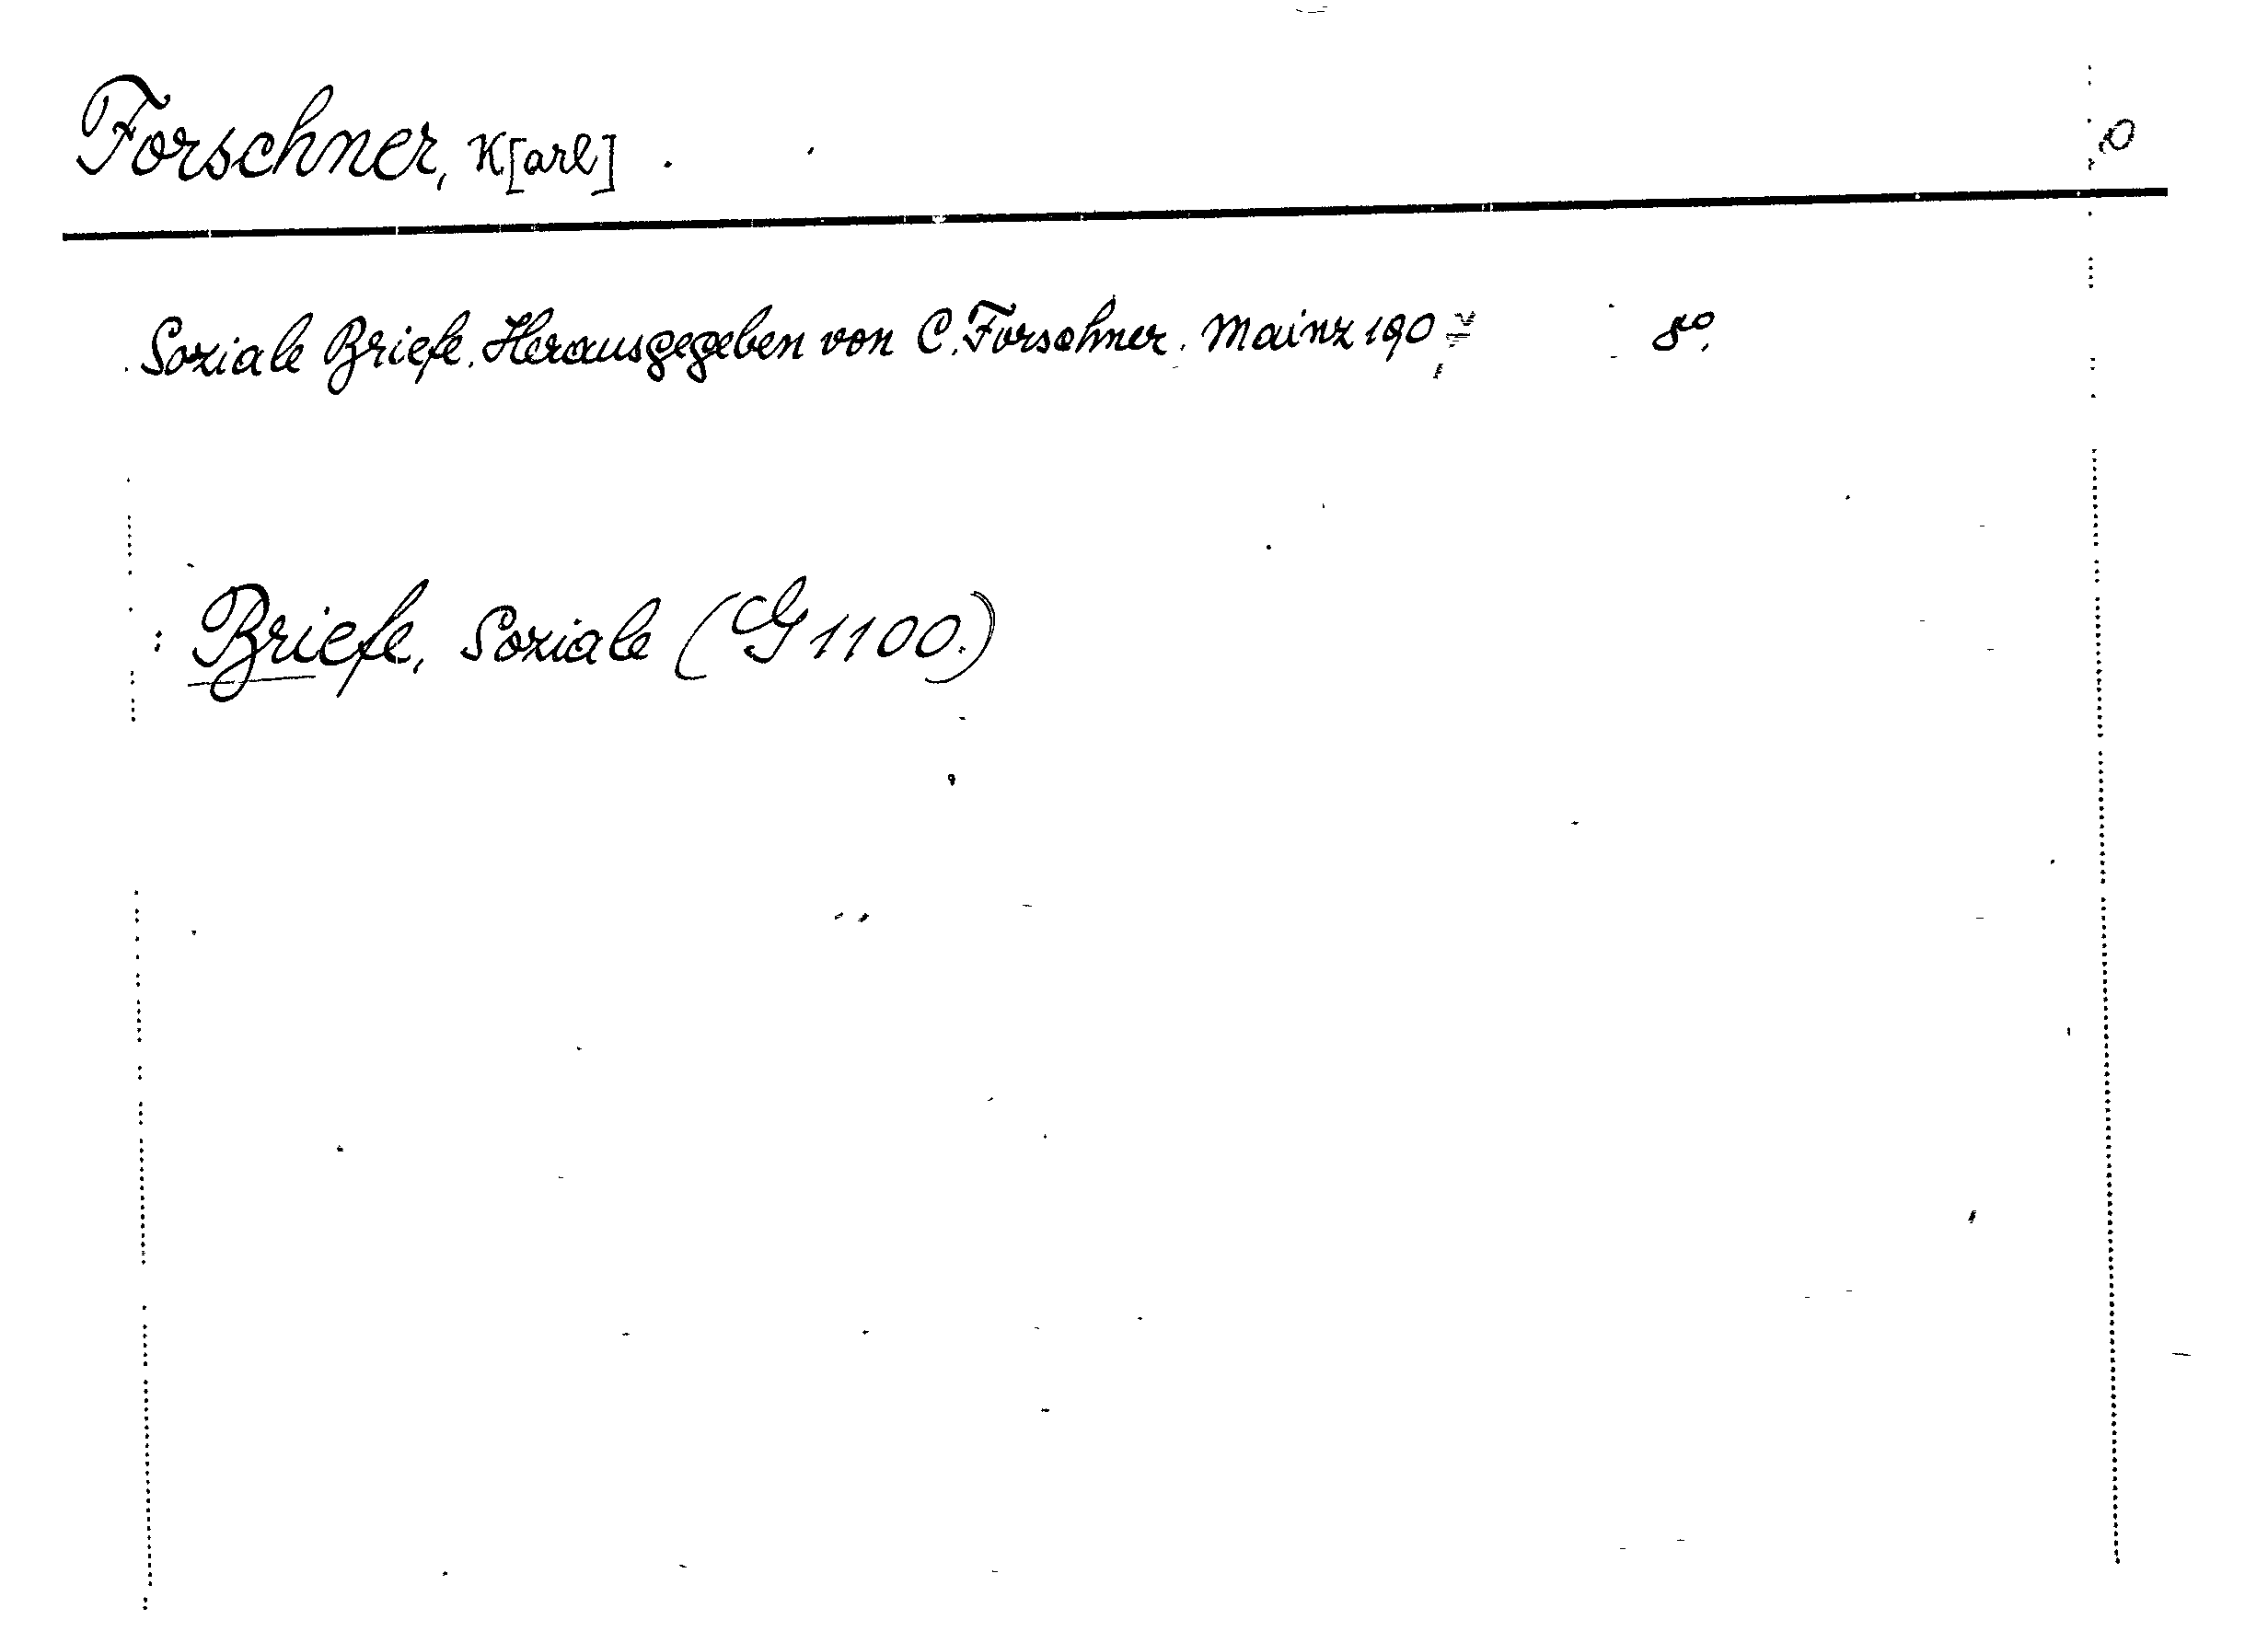 Forschner, K[arl]
Soziale Briefe. Herausgegeben von C. Forschner. Mainz 190 8°.
Briefe, Soziale (G 1100.)